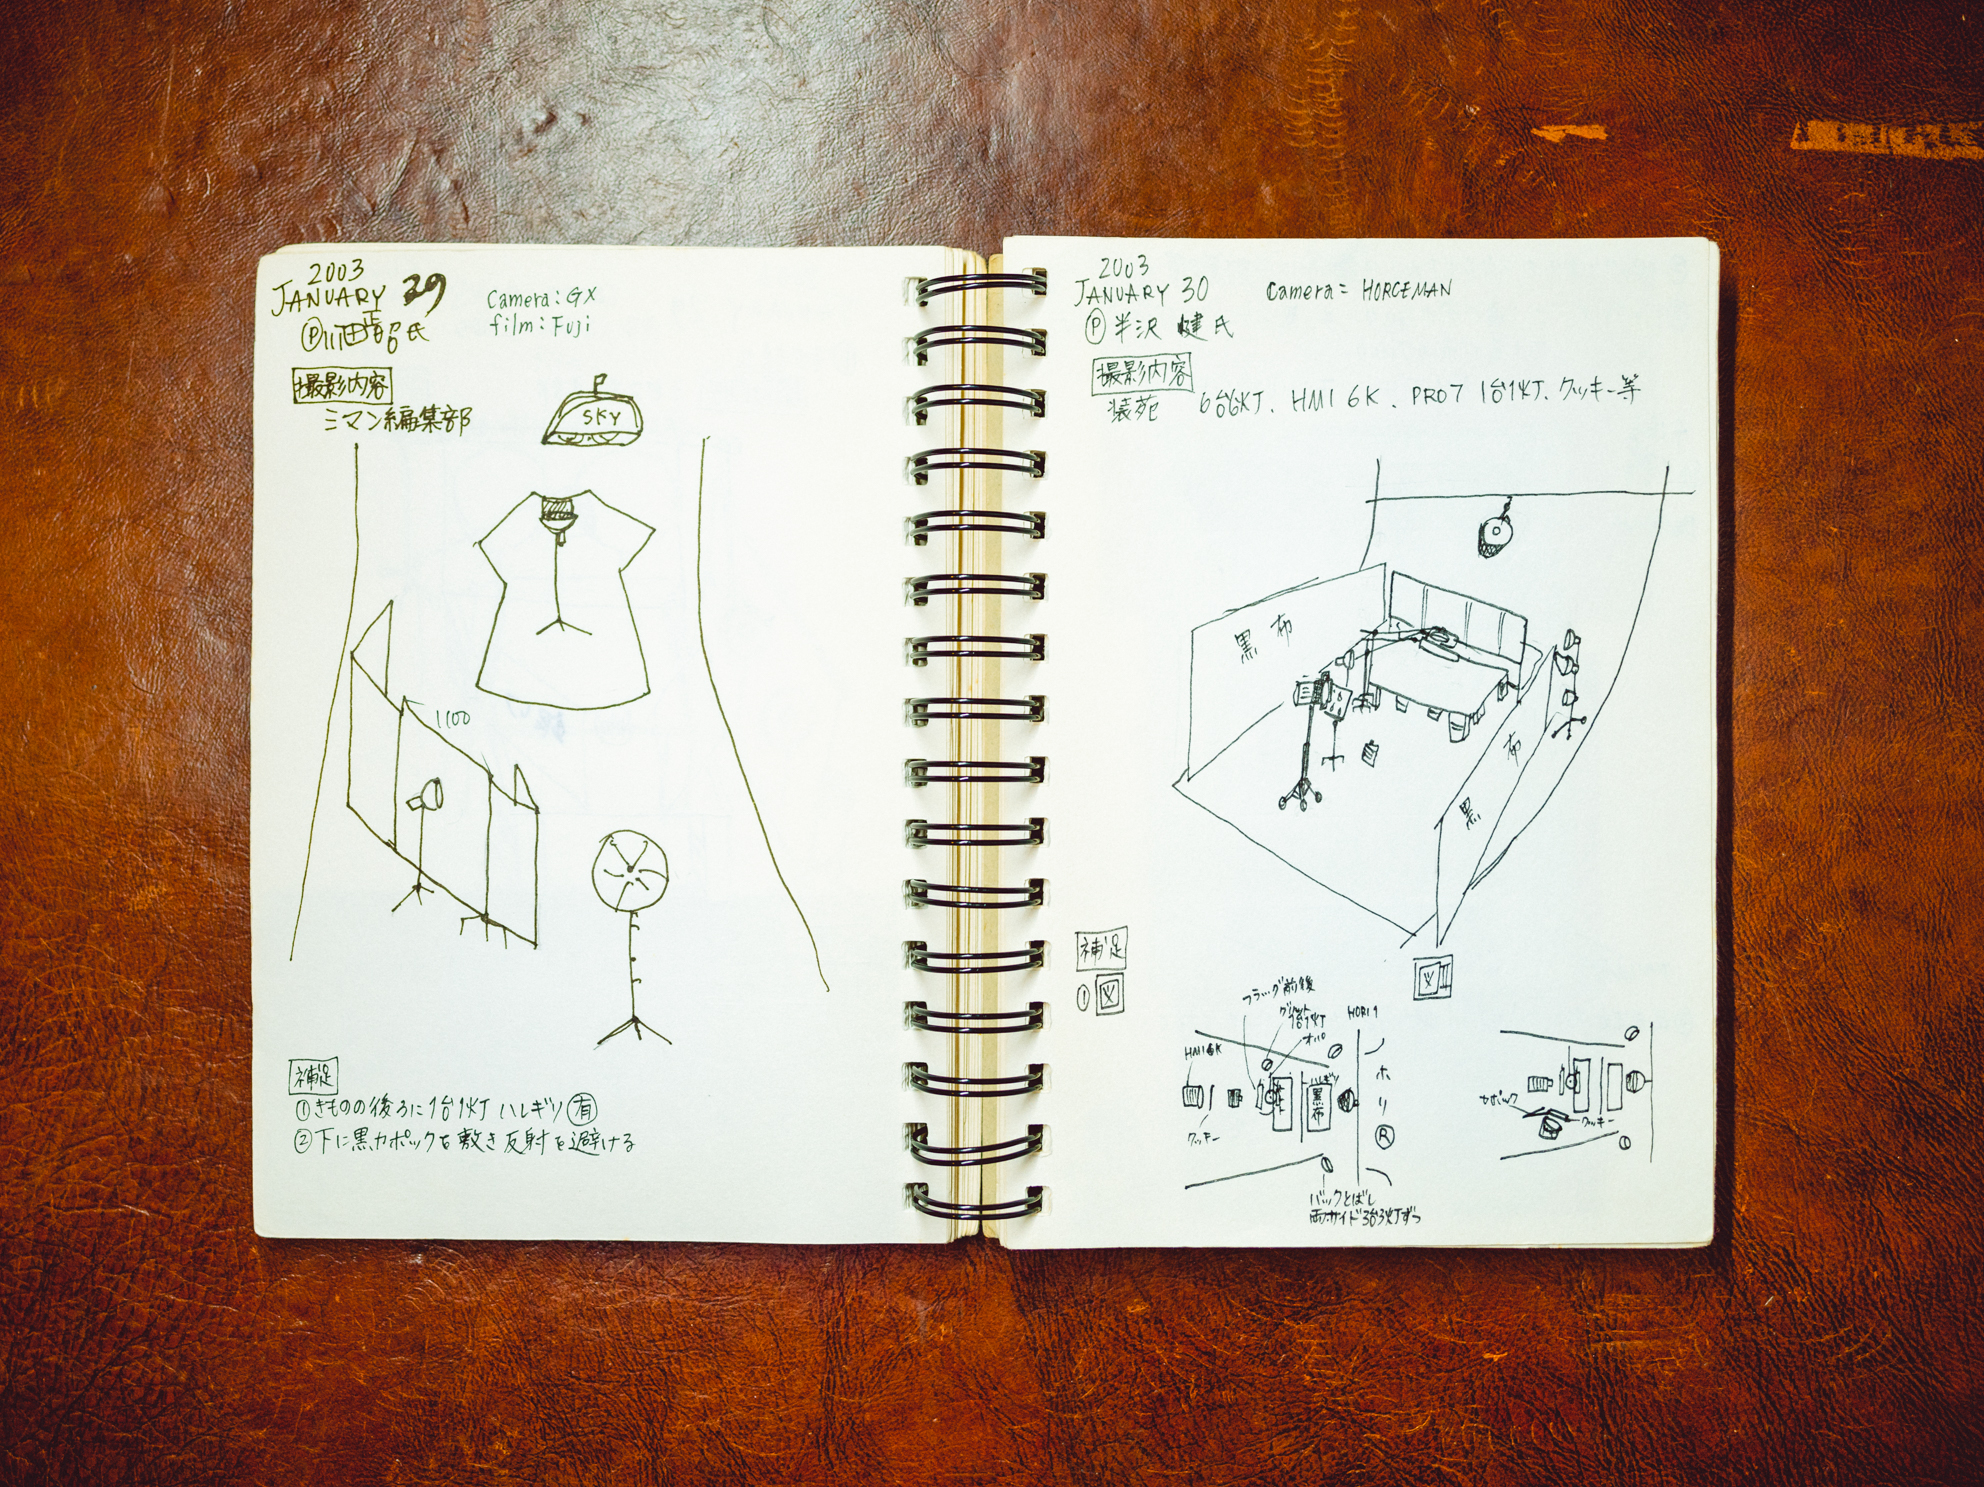 2003
JANUARY 29
Ⓟ川田 昭氏
Camera: GX
film: Fuji
撮影内容
ミマン編集部
SKY
1100
補足
①きものの後ろに1台1灯 ハレギリ㊒
②下に黒カポックを敷き反射を避ける
2003
JANUARY 30
Camera= HORCEMAN
Ⓟ半沢 健氏
撮影内容
装苑 6台6灯、HMI 6K、PRO7 1台1灯、クッキー等
黒布
黒布
補足
①図
図II
フラッグ前後
グリット
1台1灯
オパ
HORI
HMI 6K
ハレギリ
黒布
クッキー
ホリ
Ⓡ
バックとばし
両サイド3台3灯ずつ
カポック
クッキー